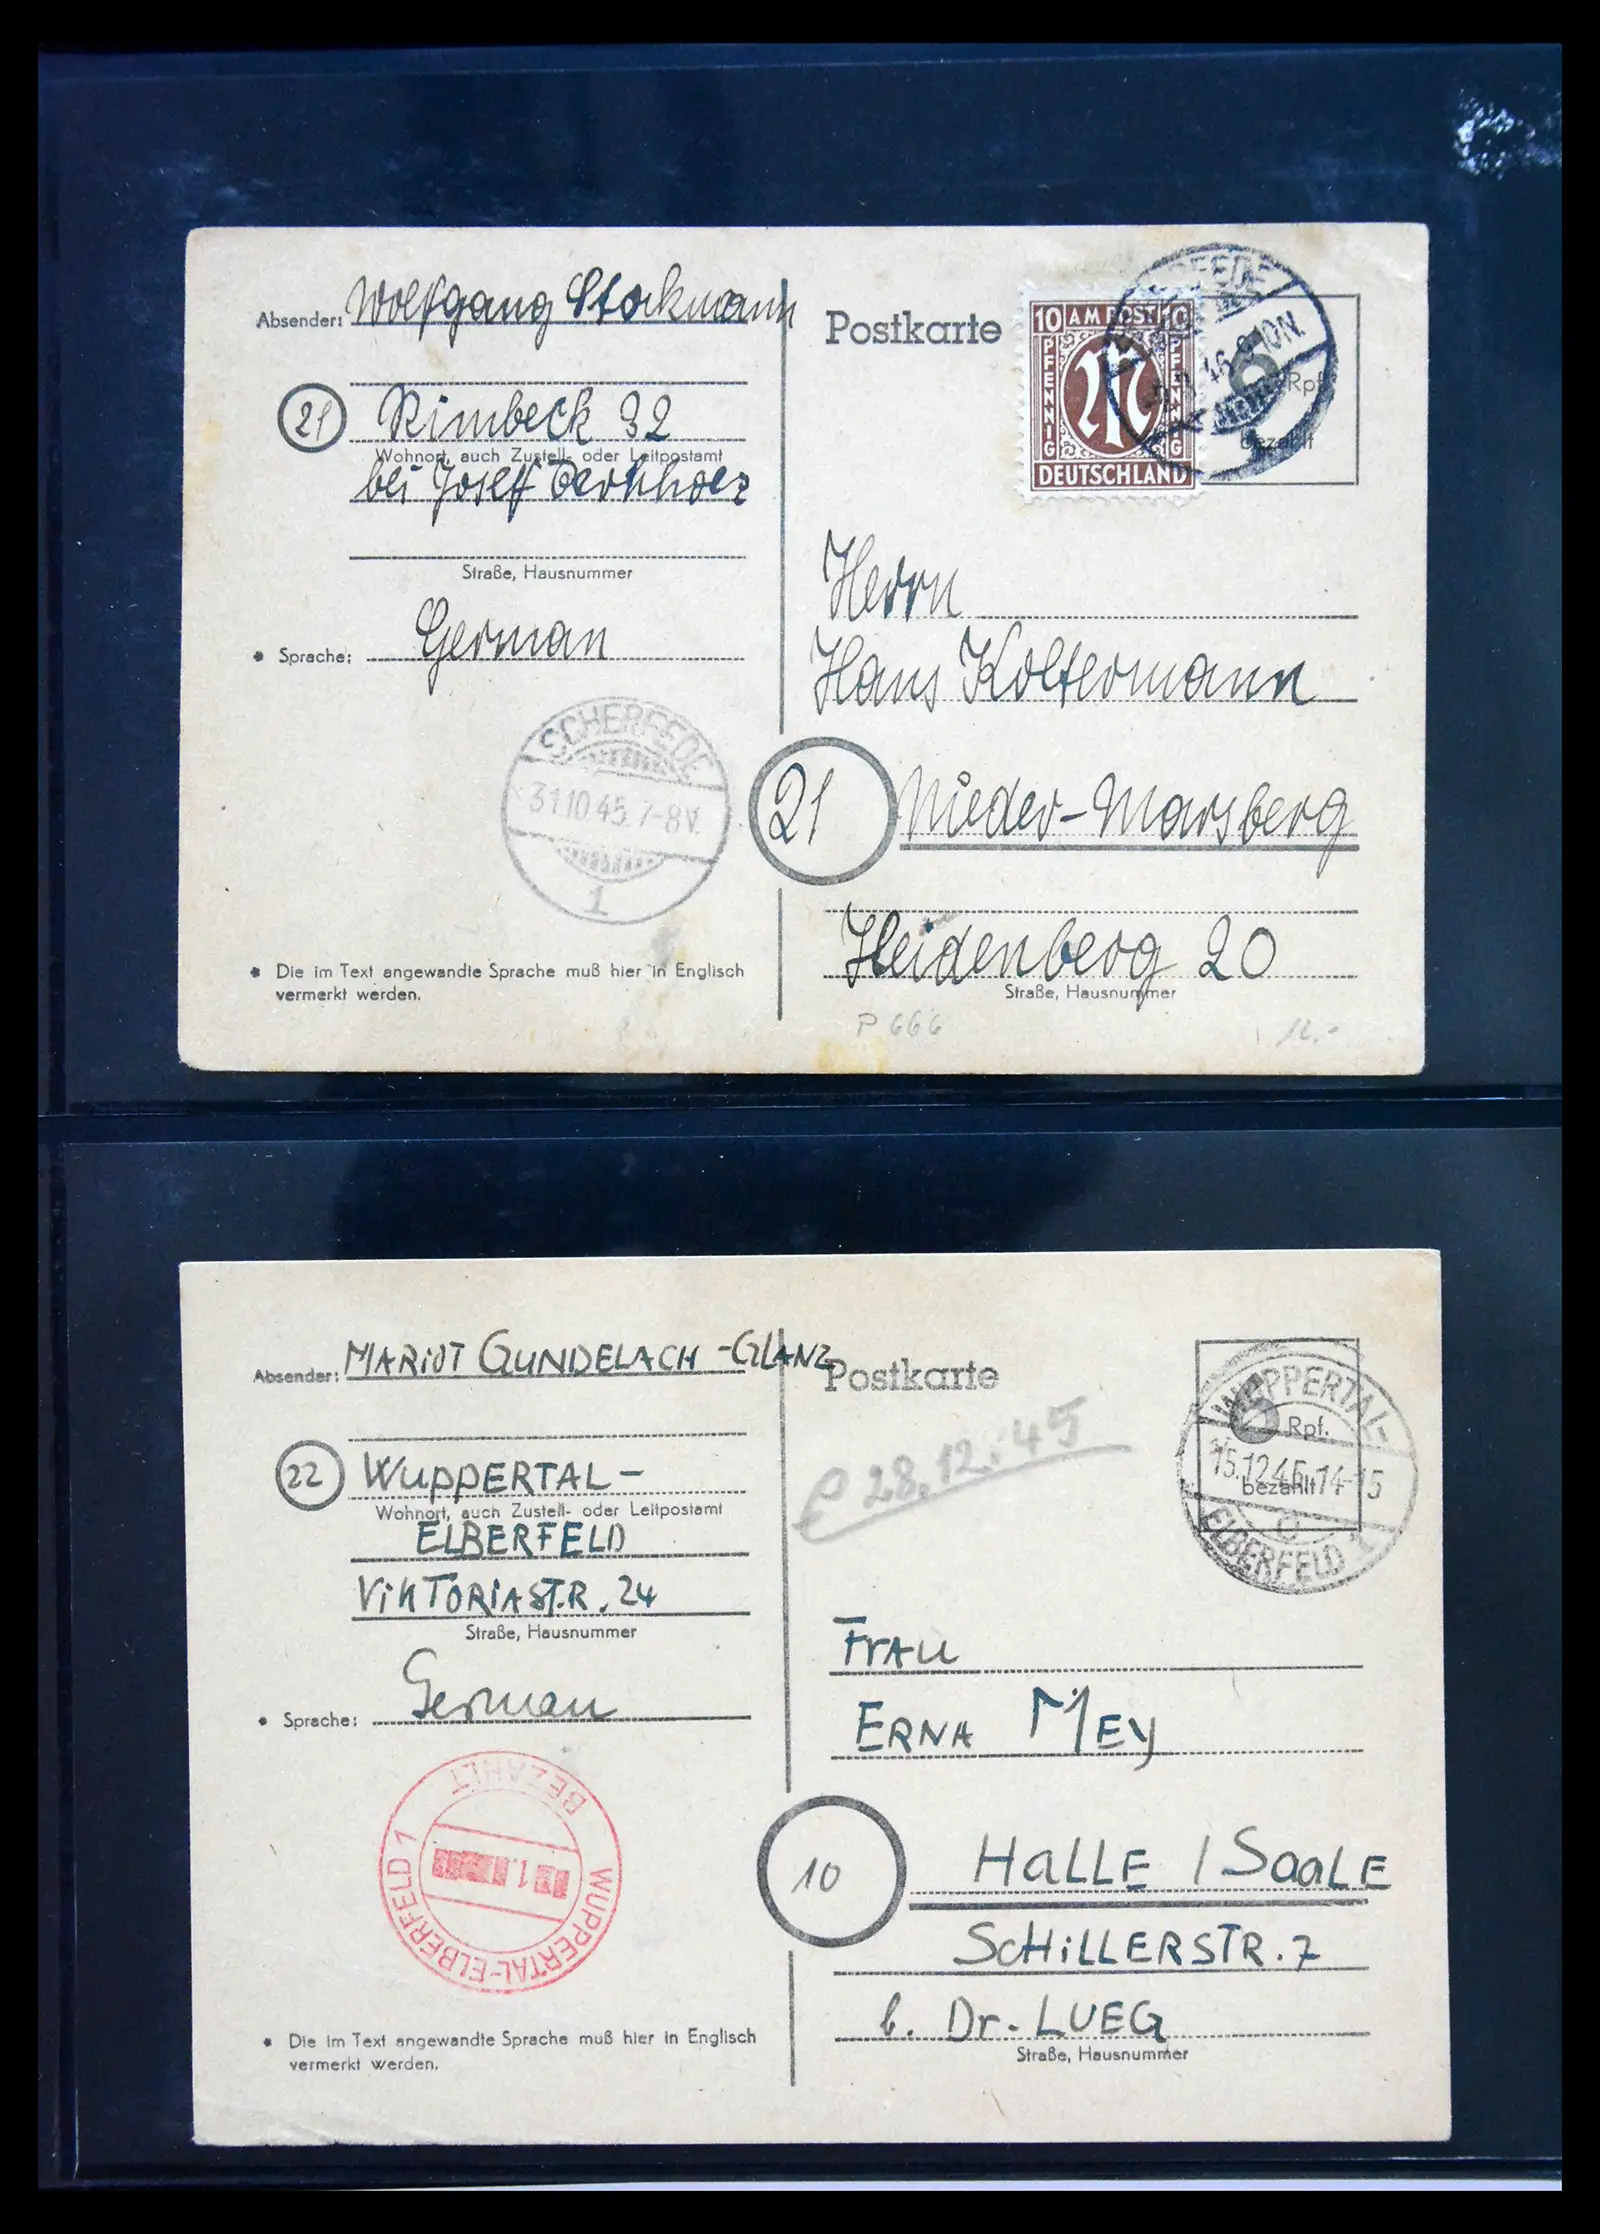 Absender: Wolfgang Stockmann
21 Rimbeck 32
Wohnort, auch Zustell- oder Leitpostamt
bei Josef
Straße, Hausnummer
* Sprache: German
SCHERFEDE
31.10.45. 7-8V.
1
* Die im Text angewandte Sprache muß hier in Englisch
vermerkt werden.
Postkarte
10 AM POST 10
PFENNIG PFENNIG
DEUTSCHLAND
6 Rpf.
bezahlt
Herrn
Hans Koltermann
21 Nieder-Marsberg
Heidenberg 20
Straße, Hausnummer
P 666
12.-
Absender: MARIOT GUNDELACH-GLANZ
22 WUPPERTAL-
Wohnort, auch Zustell- oder Leitpostamt
ELBERFELD
VIKTORIASTR. 24
Straße, Hausnummer
* Sprache: German
WUPPERTAL-ELBERFELD 1
BEZAHLT
* Die im Text angewandte Sprache muß hier in Englisch
vermerkt werden.
Postkarte
28.12.45
6 Rpf.
bezahlt
WUPPERTAL-
15.12.45.-14-15
ELBERFELD 1
FRAU
ERNA MEY
10 HALLE / SAALE
SCHILLERSTR. 7
b. Dr. LUEG
Straße, Hausnummer